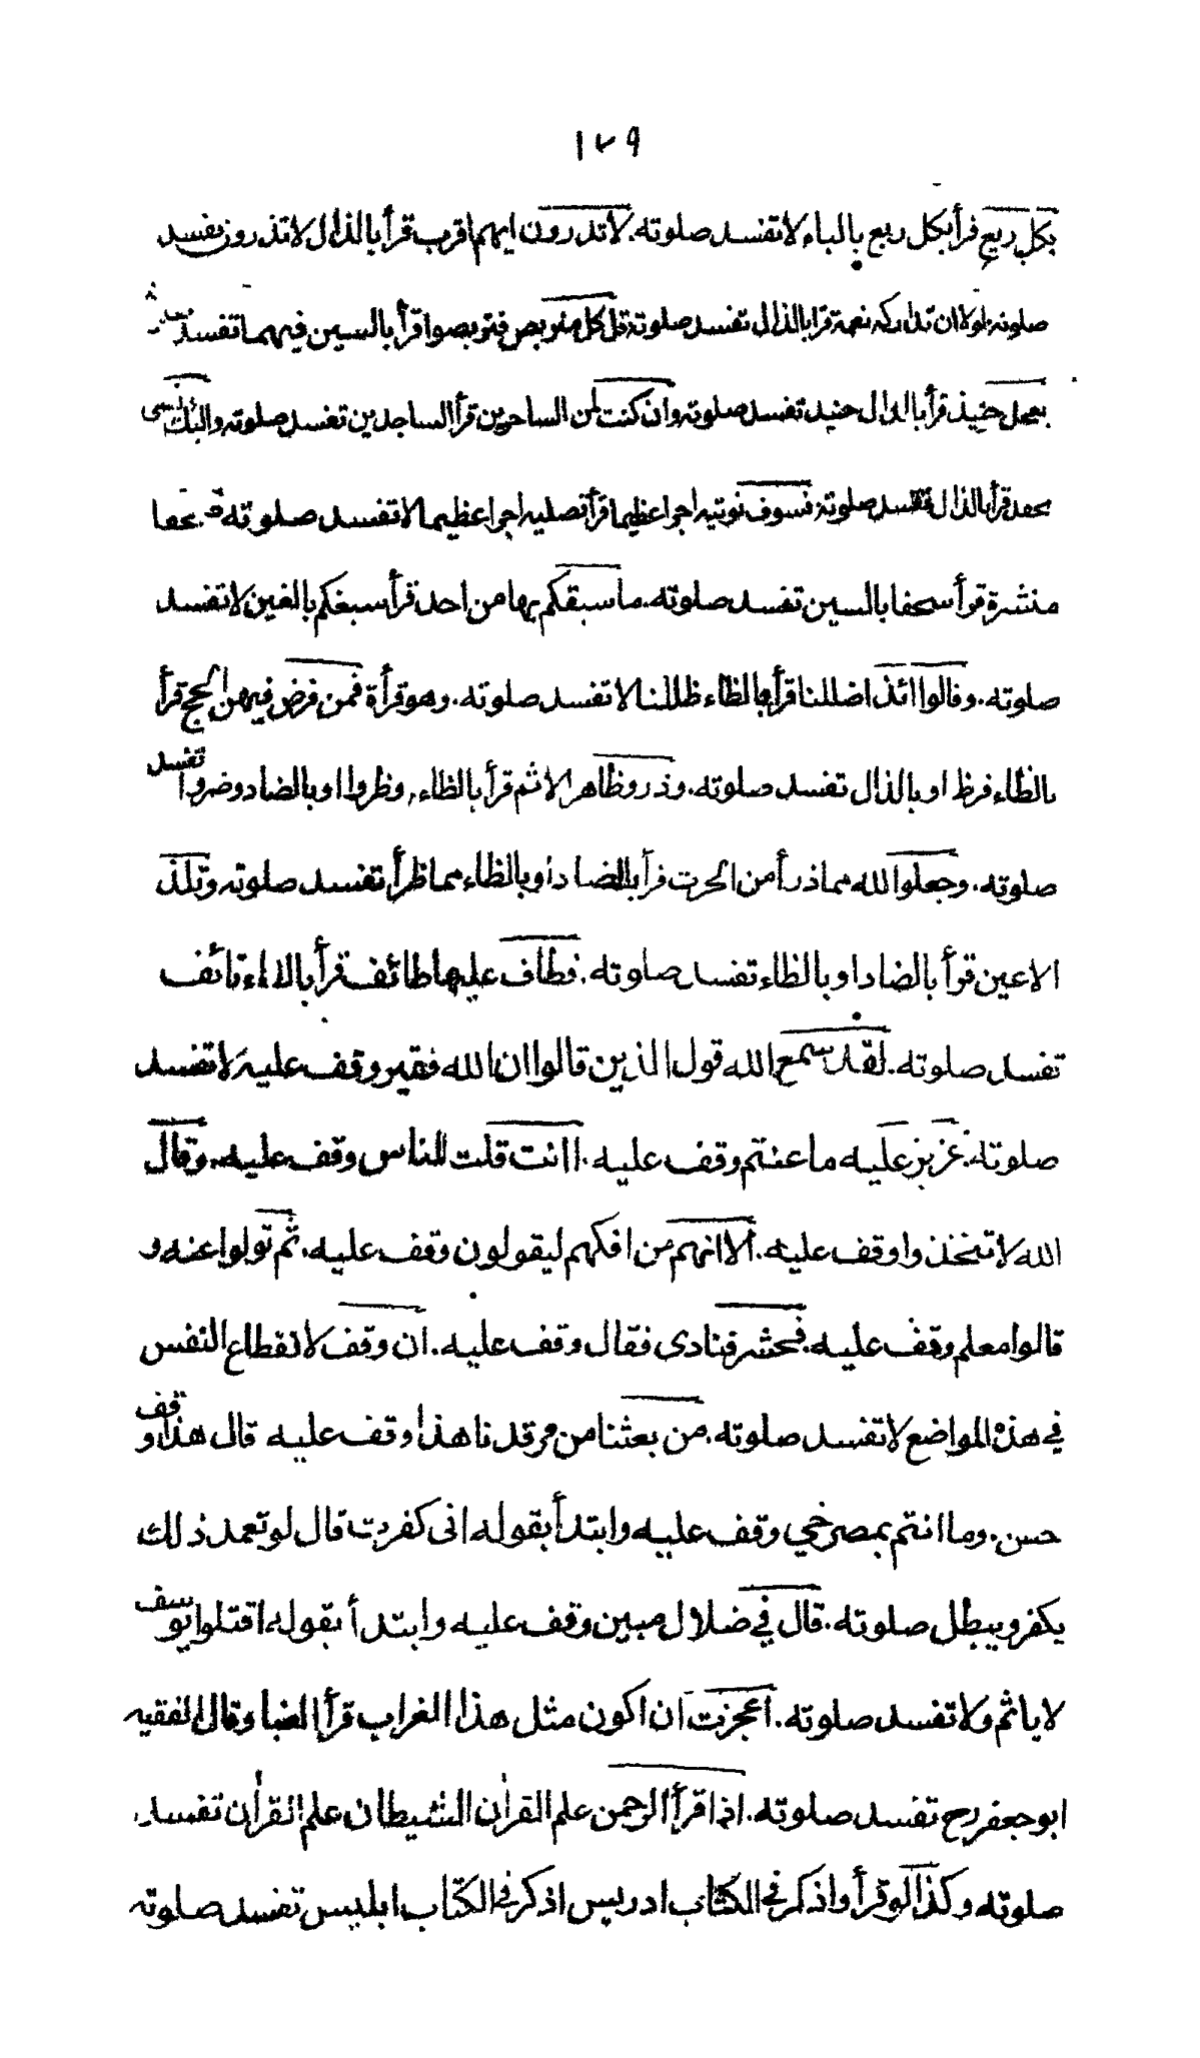 ١٧٩
بكل ريع قرأ بكل ربيع بالباء لا تفسد صلوته. لا تدرون ايهم اقرب قرأ بالذال لا تذرون تفسد
صلوته لولا ان تداركه نعمة قرا بالذال تفسد صلوته قل كل متربص فتربصوا قرأ بالسين فيهما تفسد
بعجل حنيذ قرأ بالدال حنيد تفسد صلوته وان كنت لمن الساخرين قرأ الساجدين تفسد صلوته واليك نسعى
نحفد قرأ بالذال تفسد صلوته فسوف نوتيه اجرا عظيما قرأ نصليه اجرا عظيما لا تفسد صلوته صحفا
منشرة قرأ سحفا بالسين تفسد صلوته. ما سبقكم بها من احد قرأ سبغكم بالغين لا تفسد
صلوته. وقالوا ائذا ضللنا قرأ بالظاء ظللنا لا تفسد صلوته. وهو قرأة فمن فرض فيهن الحج قرأ
بالظاء فرظ او بالذال تفسد صلوته. وذروا ظاهر الاثم قرأ بالظاء، وظروا او بالضاد وضروا تفسد
صلوته. وجعلوا لله مما ذرأ من الحرث قرأ بالضاد او بالظاء مما ظرأ تفسد صلوته وتلذ
الاعين قرأ بالضاد او بالظاء تفسد صلوته. فطاف عليها طائف قرأ بالتاء تائف
تفسد صلوته. لقد سمع الله قول الذين قالوا ان الله فقير وقف عليه لا تفسد
صلوته. عزيز عليه ما عنتم وقف عليه. اانت قلت للناس وقف عليه. وقال
الله لا تتخذوا وقف عليه. الا انهم من افكهم ليقولون وقف عليه. ثم تولوا عنه و
قالوا معلم وقف عليه. فحشر فنادى فقال وقف عليه. ان وقف لانقطاع النفس
في هذه المواضع لا تفسد صلوته. من بعثنا من مرقدنا هذا وقف عليه قال هذا وقف
حسن. وما انتم بمصرخي وقف عليه وابتدأ بقوله انى كفرت قال لو تعمد ذلك
يكفر ويبطل صلوته. قال في ضلال مبين وقف عليه وابتدأ بقوله اقتلوا يوسف
لا ياثم ولا تفسد صلوته. اعجزت ان اكون مثل هذا الغراب قرأ وقال الفقيه
ابو جعفر رح تفسد صلوته. اذا قرأ الرحمن علم القرأن الشيطان علم القرأن تفسد
صلوته وكذا لو قرأ واذكر فى الكتاب ادريس اذكر فى الكتاب ابليس تفسد صلوته